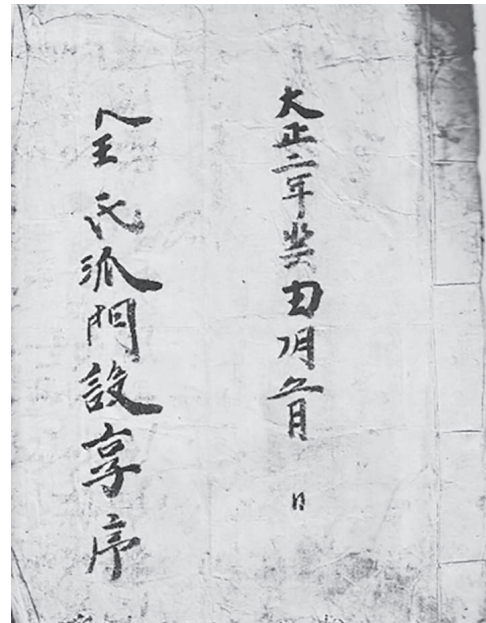 大正二年癸丑五月 日
全氏派門設享序